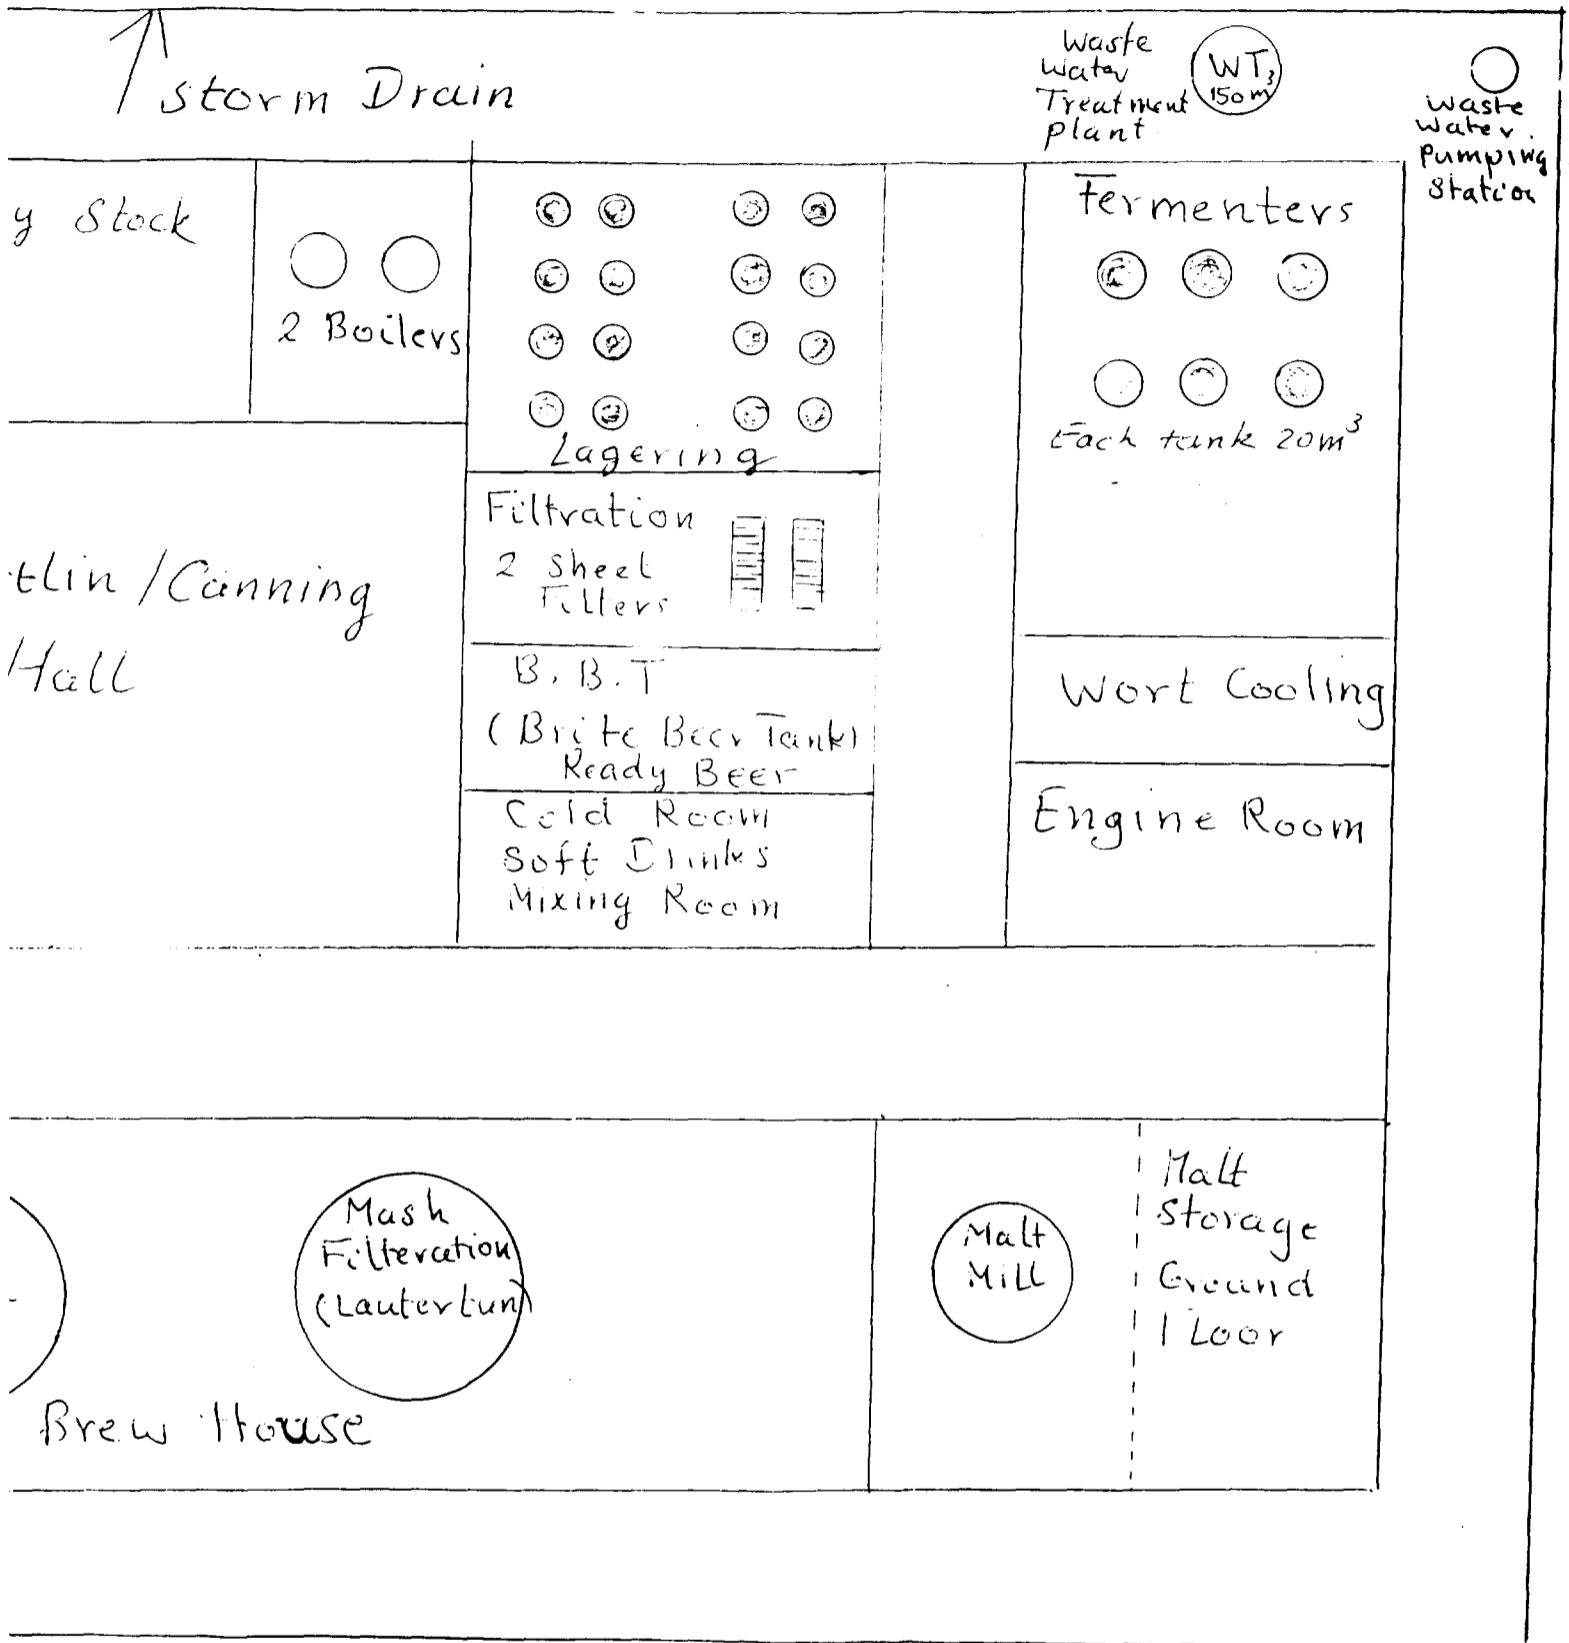 storm Drain
Waste
Water
Treatment
plant
WT
150m³
Waste
Water
Pumping
Station
y Stock
2 Boilers
Lagering
Fermenters
Each tank 20m³
Filtration
2 Sheet
Filters
tlin / Canning
Hall
B. B. T
(Brite Beer Tank)
Ready Beer
Cold Room
Soft Drinks
Mixing Room
Wort Cooling
Engine Room
Mash
Filteration
(Lautertun)
Brew House
Malt
Mill
Malt
Storage
Ground
Floor